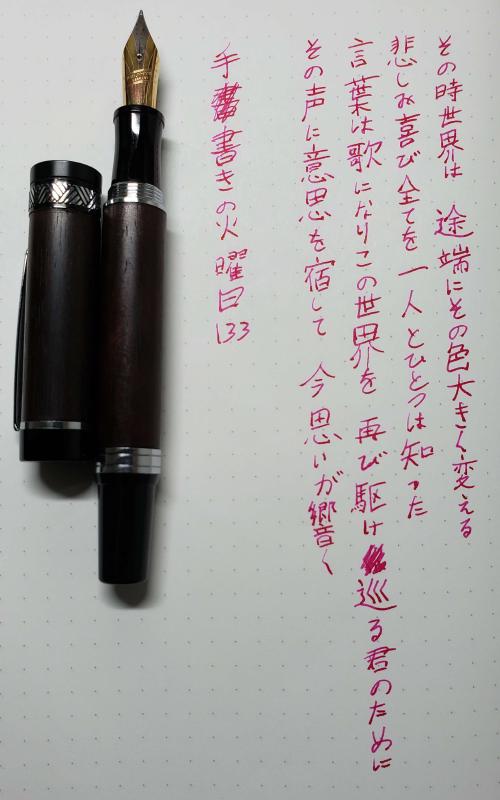 その時世界は 途端にその色大きく変える
悲しみ喜び全てを 一人とひとつは知った
言葉は歌になりこの世界を 再び駆け巡る君のために
その声に意思を宿して 今思いが響く
手書きの火曜日133